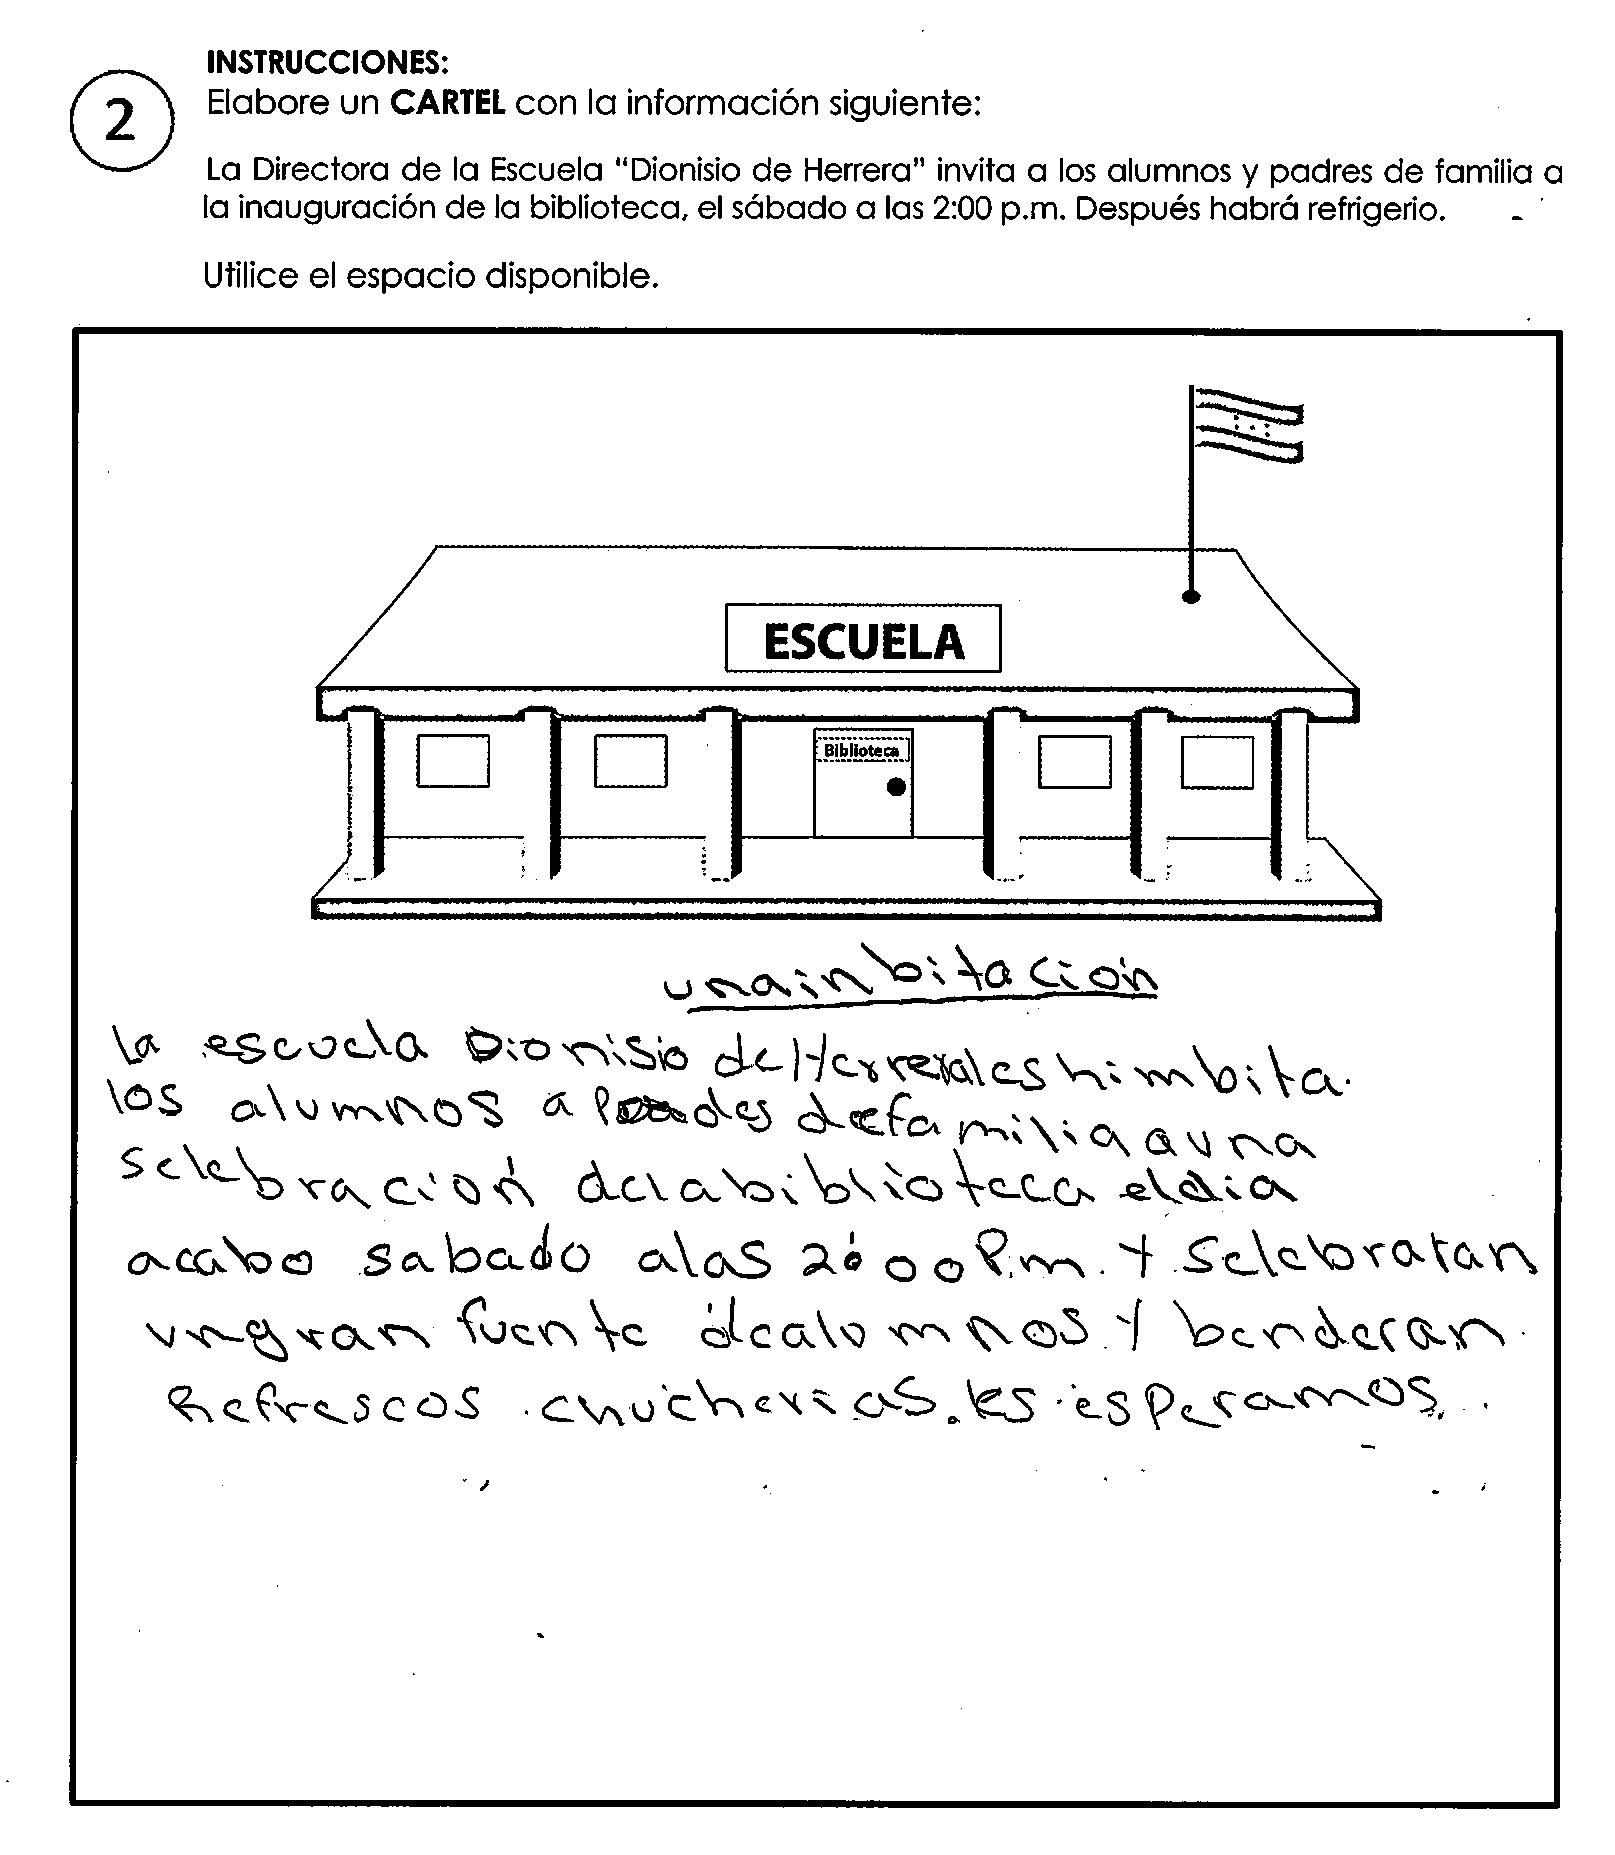 INSTRUCCIONES:
2
Elabore un CARTEL con la información siguiente:
La Directora de la Escuela "Dionisio de Herrera" invita a los alumnos y padres de familia a
la inauguración de la biblioteca, el sábado a las 2:00 p.m. Después habrá refrigerio.
Utilice el espacio disponible.
ESCUELA
Biblioteca
unainbitación
La escuela Dionisio de Herrera les himbita.
los alumnos a de familia a una
selebración dela biblioteca el dia
acabo sabado alas 2:00 P.m. Y Selebraran
ungran fuente dealumnos Y benderan
Refrescos chucherias. les esperamos.